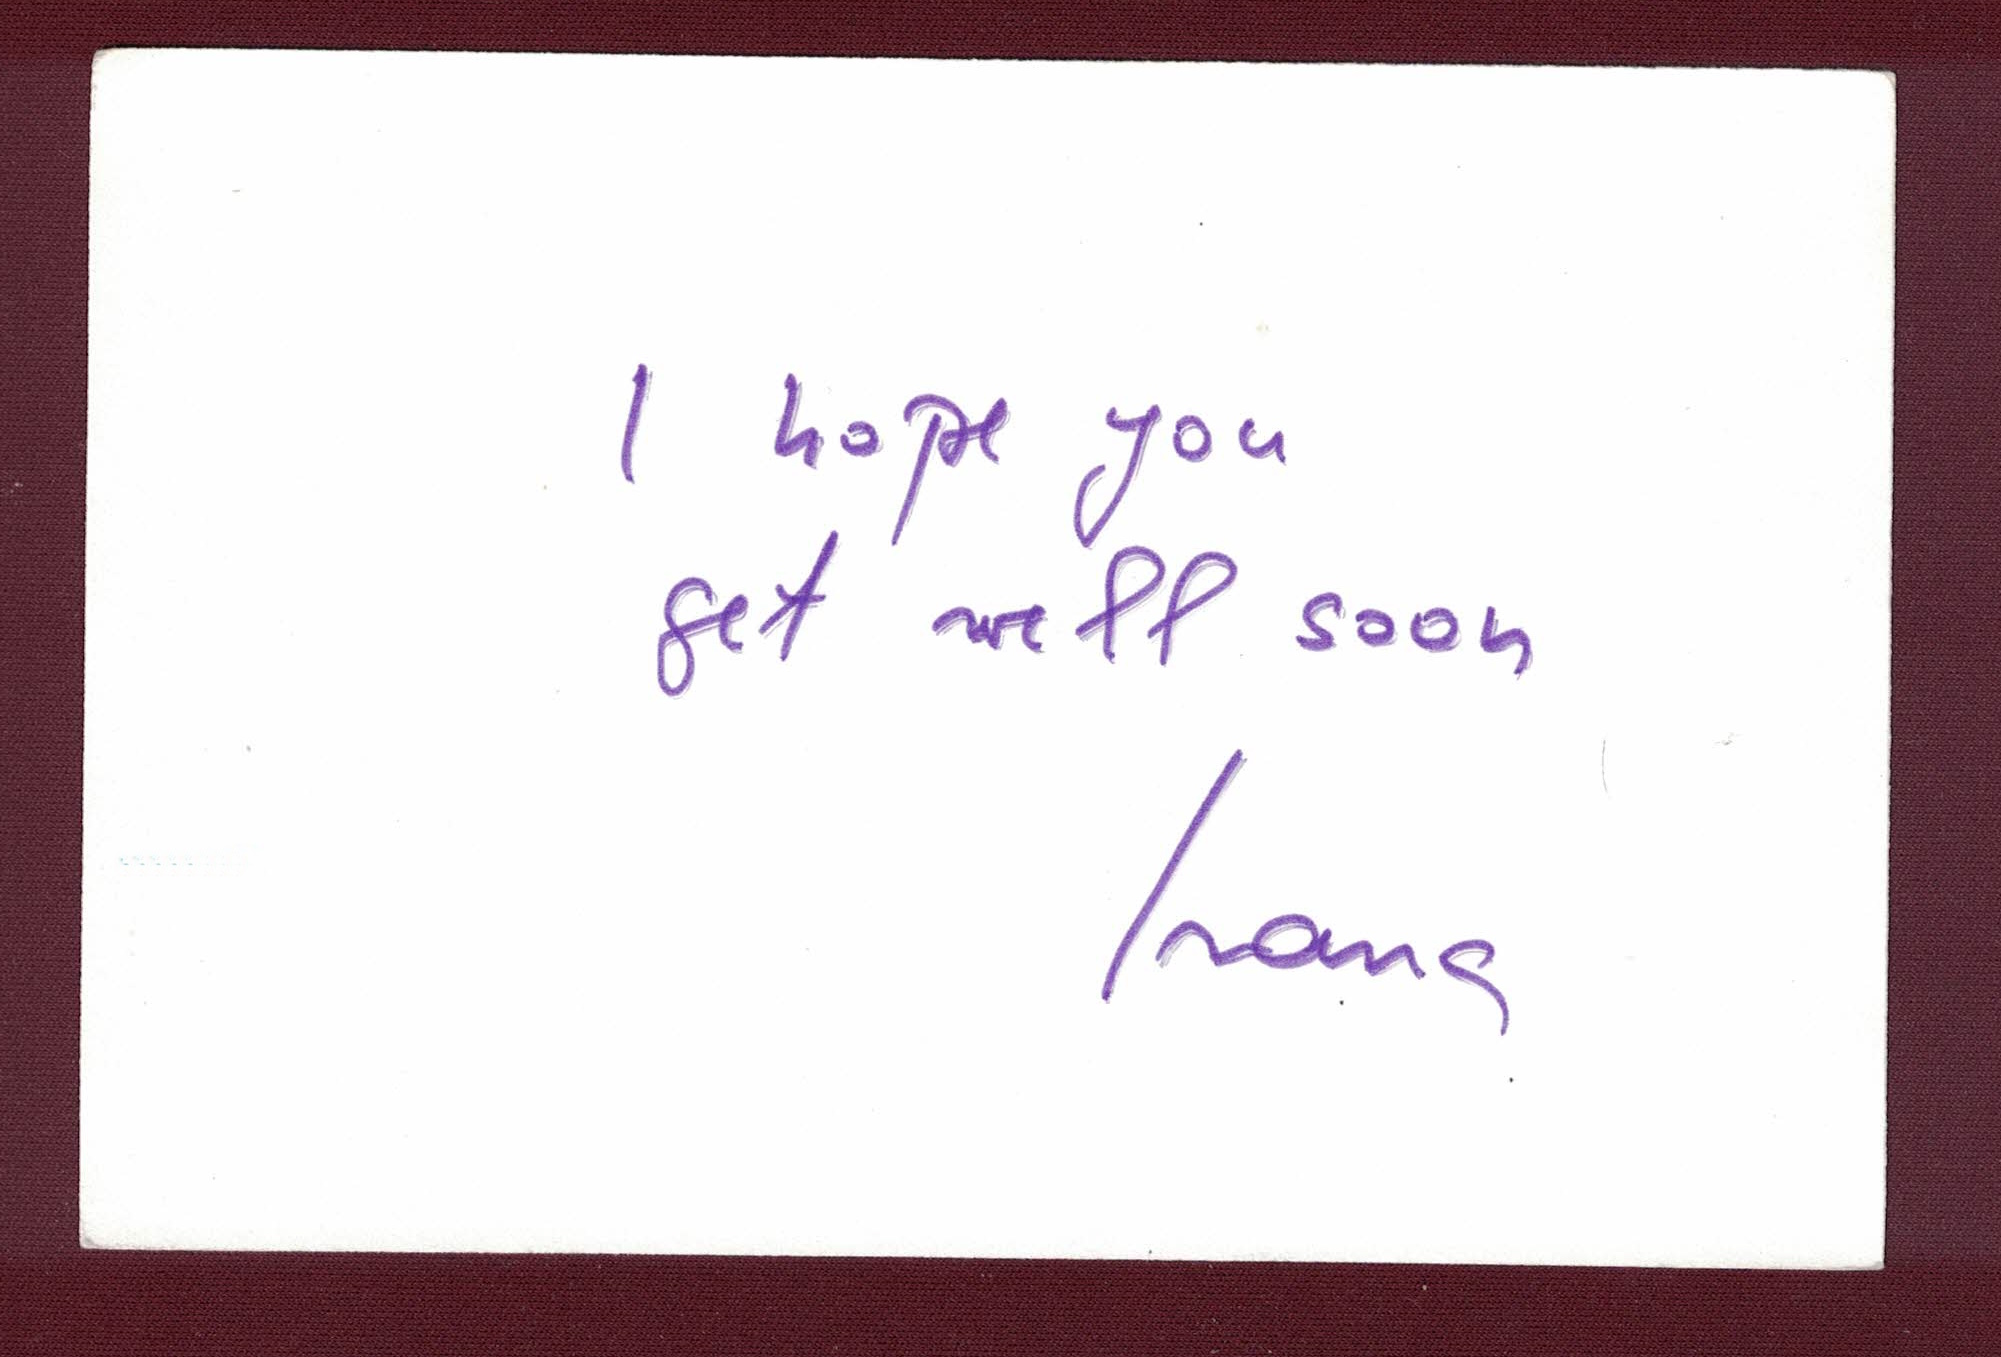 I hope you
get well soon
Ivana